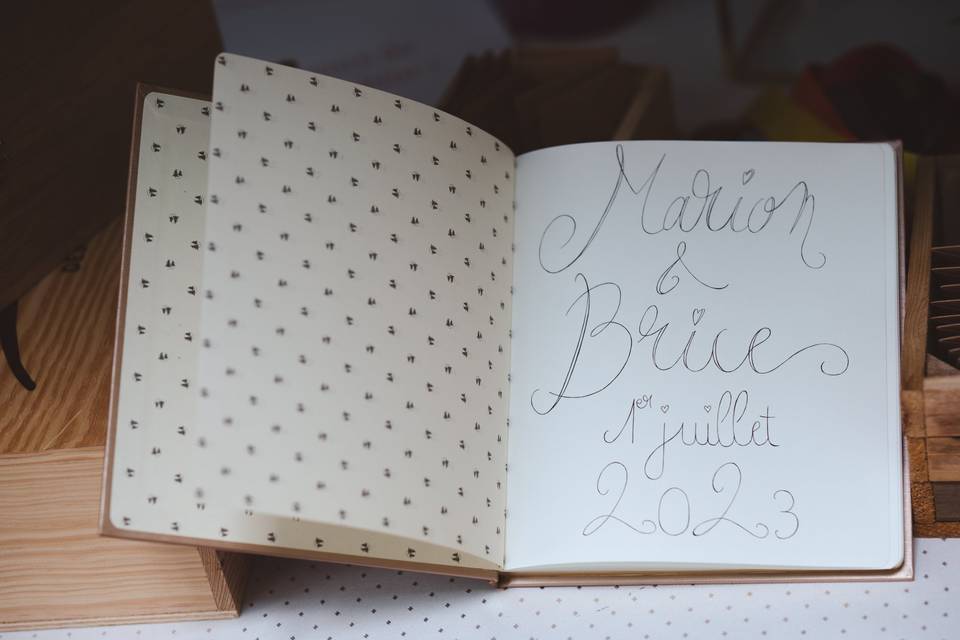 Marion
&
Brice
1er juillet
2023